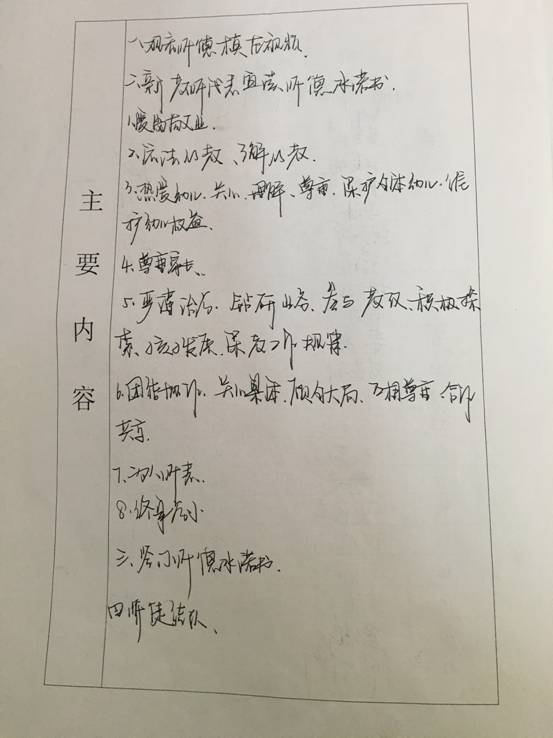 主要内容
一、观看师德模范视频.
二、新教师代表宣读师德承诺书.
1.爱岗敬业.
2.依法从教、了解从教.
3.热爱幼儿.关心、理解、尊重.保护全体幼儿.维
护幼儿权益.
4.尊重家长.
5.严谨治学.钻研业务.参与教改.积极探
索.幼儿发展.保教工作规律.
6.团结协作.关心集体.顾全大局.互相尊重.合作
共享.
7.为人师表.
8.终身学习
三、签订师德承诺书.
四.师徒结队.